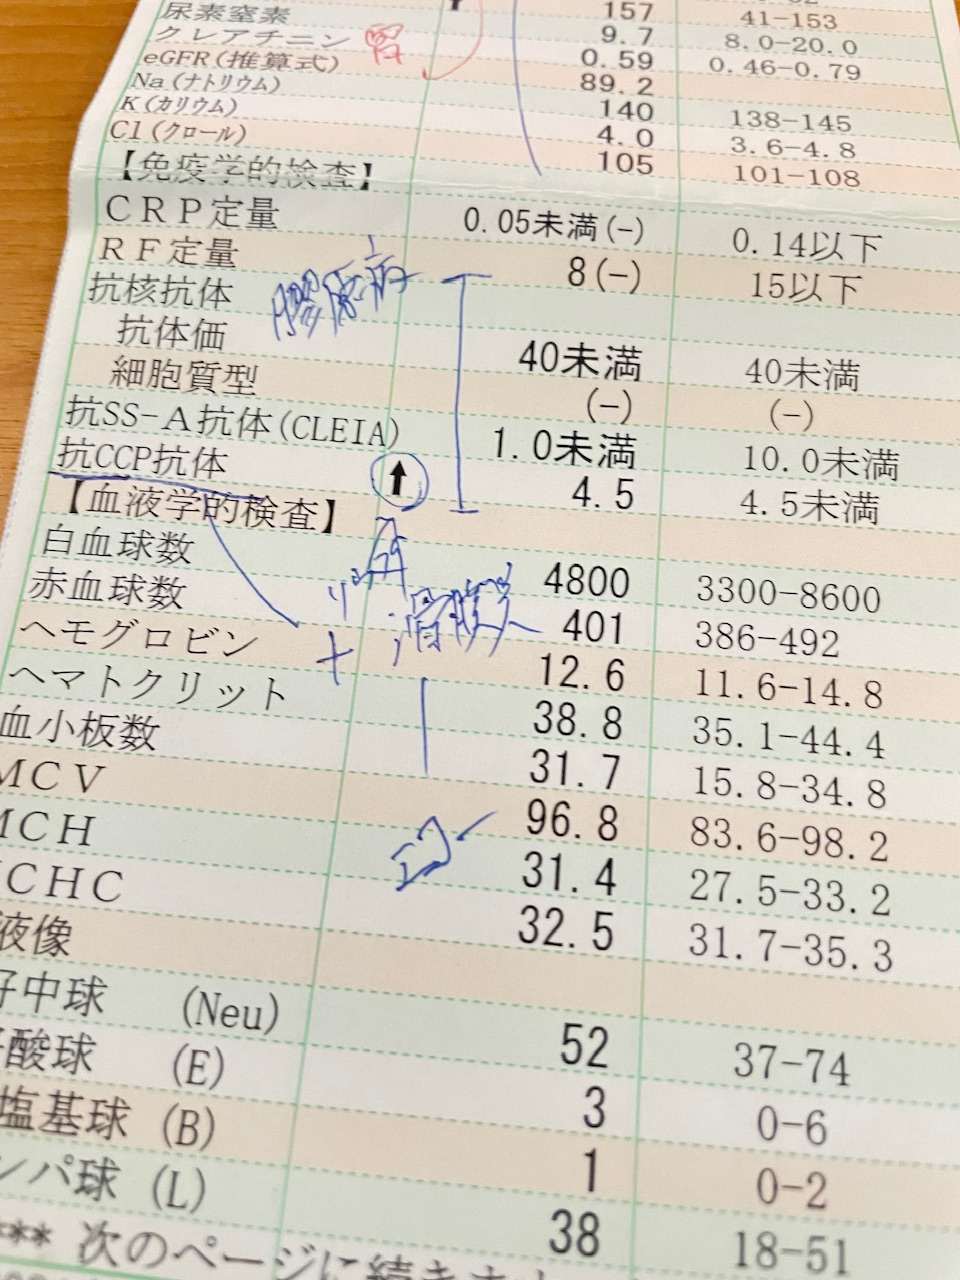 157 41-153
尿素窒素 9.7 8.0-20.0
クレアチニン 腎 0.59 0.46-0.79
eGFR(推算式) 89.2
Na(ナトリウム) 140 138-145
K(カリウム) 4.0 3.6-4.8
Cl(クロール) 105 101-108
【免疫学的検査】
CRP定量 0.05未満(-) 0.14以下
RF定量 8(-) 15以下
抗核抗体 膠原病
抗体価 40未満 40未満
細胞質型 (-) (-)
抗SS-A抗体(CLEIA) 1.0未満 10.0未満
抗CCP抗体 ↑ 4.5 4.5未満
【血液学的検査】
白血球数 4800 3300-8600
赤血球数 401 386-492
+ 滑膜炎
ヘモグロビン 12.6 11.6-14.8
ヘマトクリット 38.8 35.1-44.4
血小板数 31.7 15.8-34.8
MCV 96.8 83.6-98.2
MCH 31.4 27.5-33.2
CHC 32.5 31.7-35.3
液像
好中球 (Neu) 52 37-74
酸球 (E) 3 0-6
塩基球 (B) 1 0-2
ンパ球 (L) 38 18-51
*** 次のページに続きます